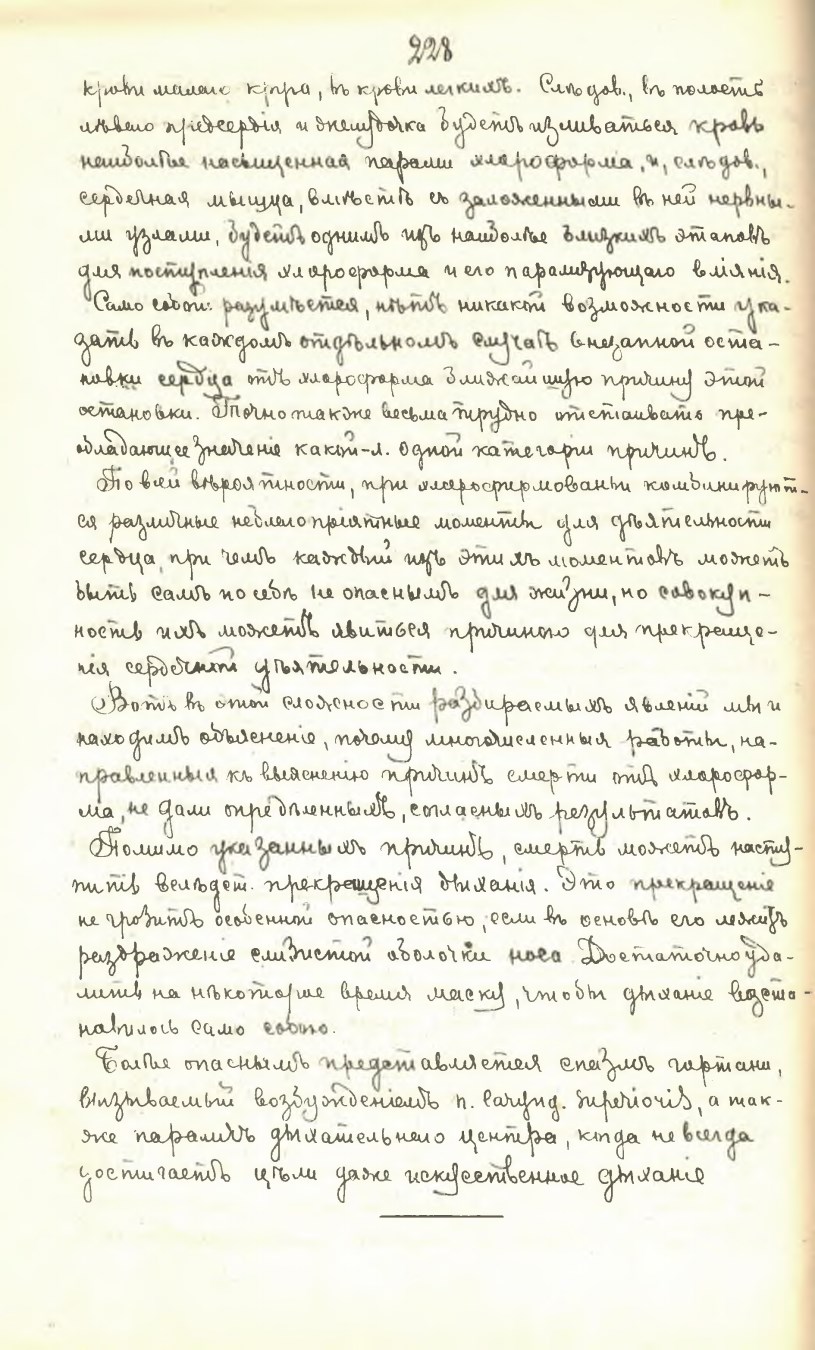 228
крови малаго круга, въ крови легкихъ. Слѣдов., въ полость
лѣваго предсердія и желудочка будетъ изливаться кровь
наиболѣе насыщенная парами хлороформа, и, слѣдов.,
сердечная мышца, вмѣстѣ съ заложенными въ ней нервны-
ми узлами, будетъ однимъ изъ наиболѣе близкихъ этаповъ
для поступленія хлороформа и его парализующаго вліянія.
Само собой разумѣется, нѣтъ никакой возможности ука-
зать въ каждомъ отдѣльномъ случаѣ внезапной оста-
новки сердца отъ хлороформа ближайшую причину этой
остановки. Точно также весьма трудно отстаивать пре-
обладающее значеніе какой-л. одной категоріи причинъ.
По всей вѣроятности, при хлороформованіи комбинируют-
ся различные неблагопріятные моменты для дѣятельности
сердца, при чемъ каждый изъ этихъ моментовъ можетъ
быть самъ по себѣ не опаснымъ для жизни, но совокуп-
ность ихъ можетъ явиться причиною для прекраще-
нія сердечной дѣятельности.
Вотъ въ этой сложности разбираемыхъ явленій мы и
находимъ объясненіе, почему многочисленныя работы, на-
правленныя къ выясненію причинъ смерти отъ хлорофор-
ма, не дали опредѣленныхъ, согласныхъ результатовъ.
Помимо указанныхъ причинъ, смерть можетъ насту-
пить вслѣдст. прекращенія дыханія. Это прекращеніе
не грозитъ особенной опасностью, если въ основѣ его лежитъ
раздраженіе слизистой оболочки носа Достаточно уда-
лить на нѣкоторое время маску, чтобы дыханіе возста-
новилось само собою.
Болѣе опаснымъ представляется спазмъ гортани,
вызываемый возбужденіемъ n. laryng. superioris, а так-
же параличъ дыхательнаго центра, когда не всегда
достигаетъ цѣли даже искусственное дыханіе